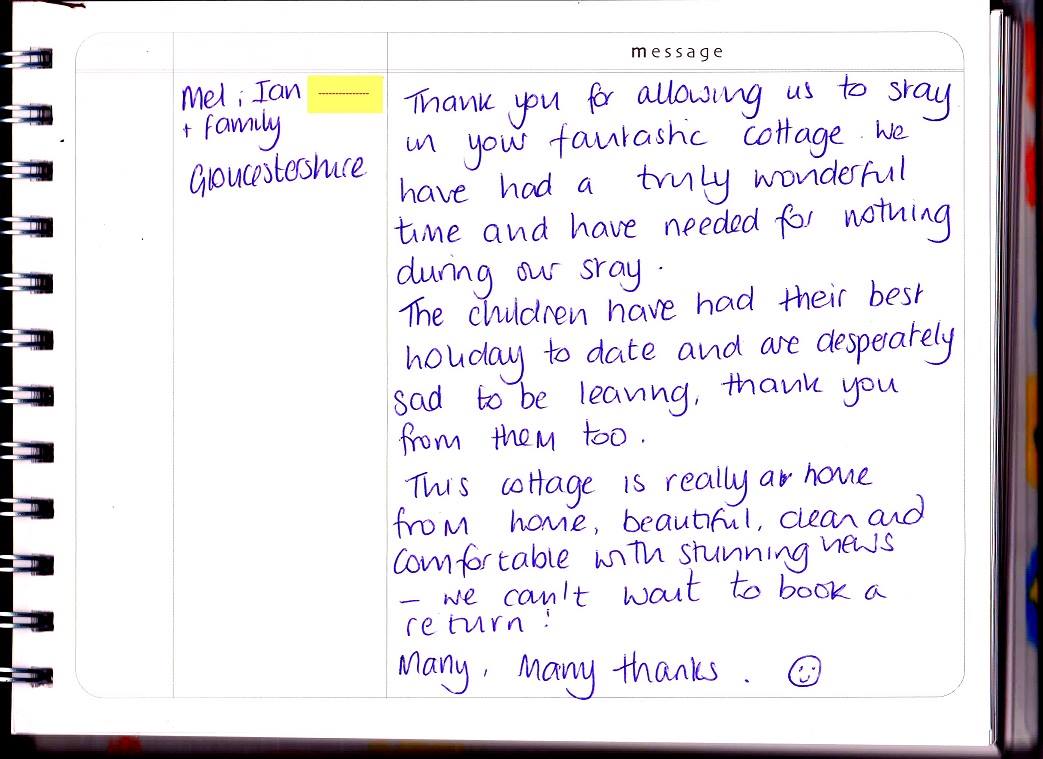 message
Mel ; Ian
+ family
Gloucestershire
Thank you for allowing us to stay
in your fantastic cottage. We
have had a truly wonderful
time and have needed for nothing
during our stay.
The children have had their best
holiday to date and are desperately
sad to be leaving, thank you
from them too.
This cottage is really a home
from home, beautiful, clean and
comfortable with stunning views
– we can't wait to book a
return!
Many, Many thanks.